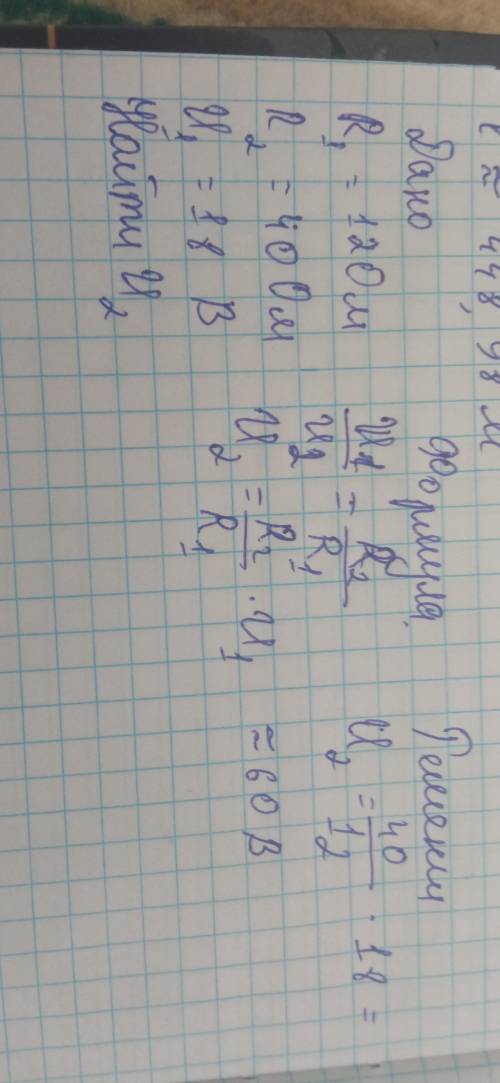 l ≈ 448,98 м
Дано
R₁ = 12 Ом
R₂ = 40 Ом
U₁ = 18 В
Найти U₂
Формула.
U₁/U₂ = R₂/R₁
U₂ = R₂/R₁ · U₁
Решении
U₂ = 40/12 · 18 =
≈ 60 В